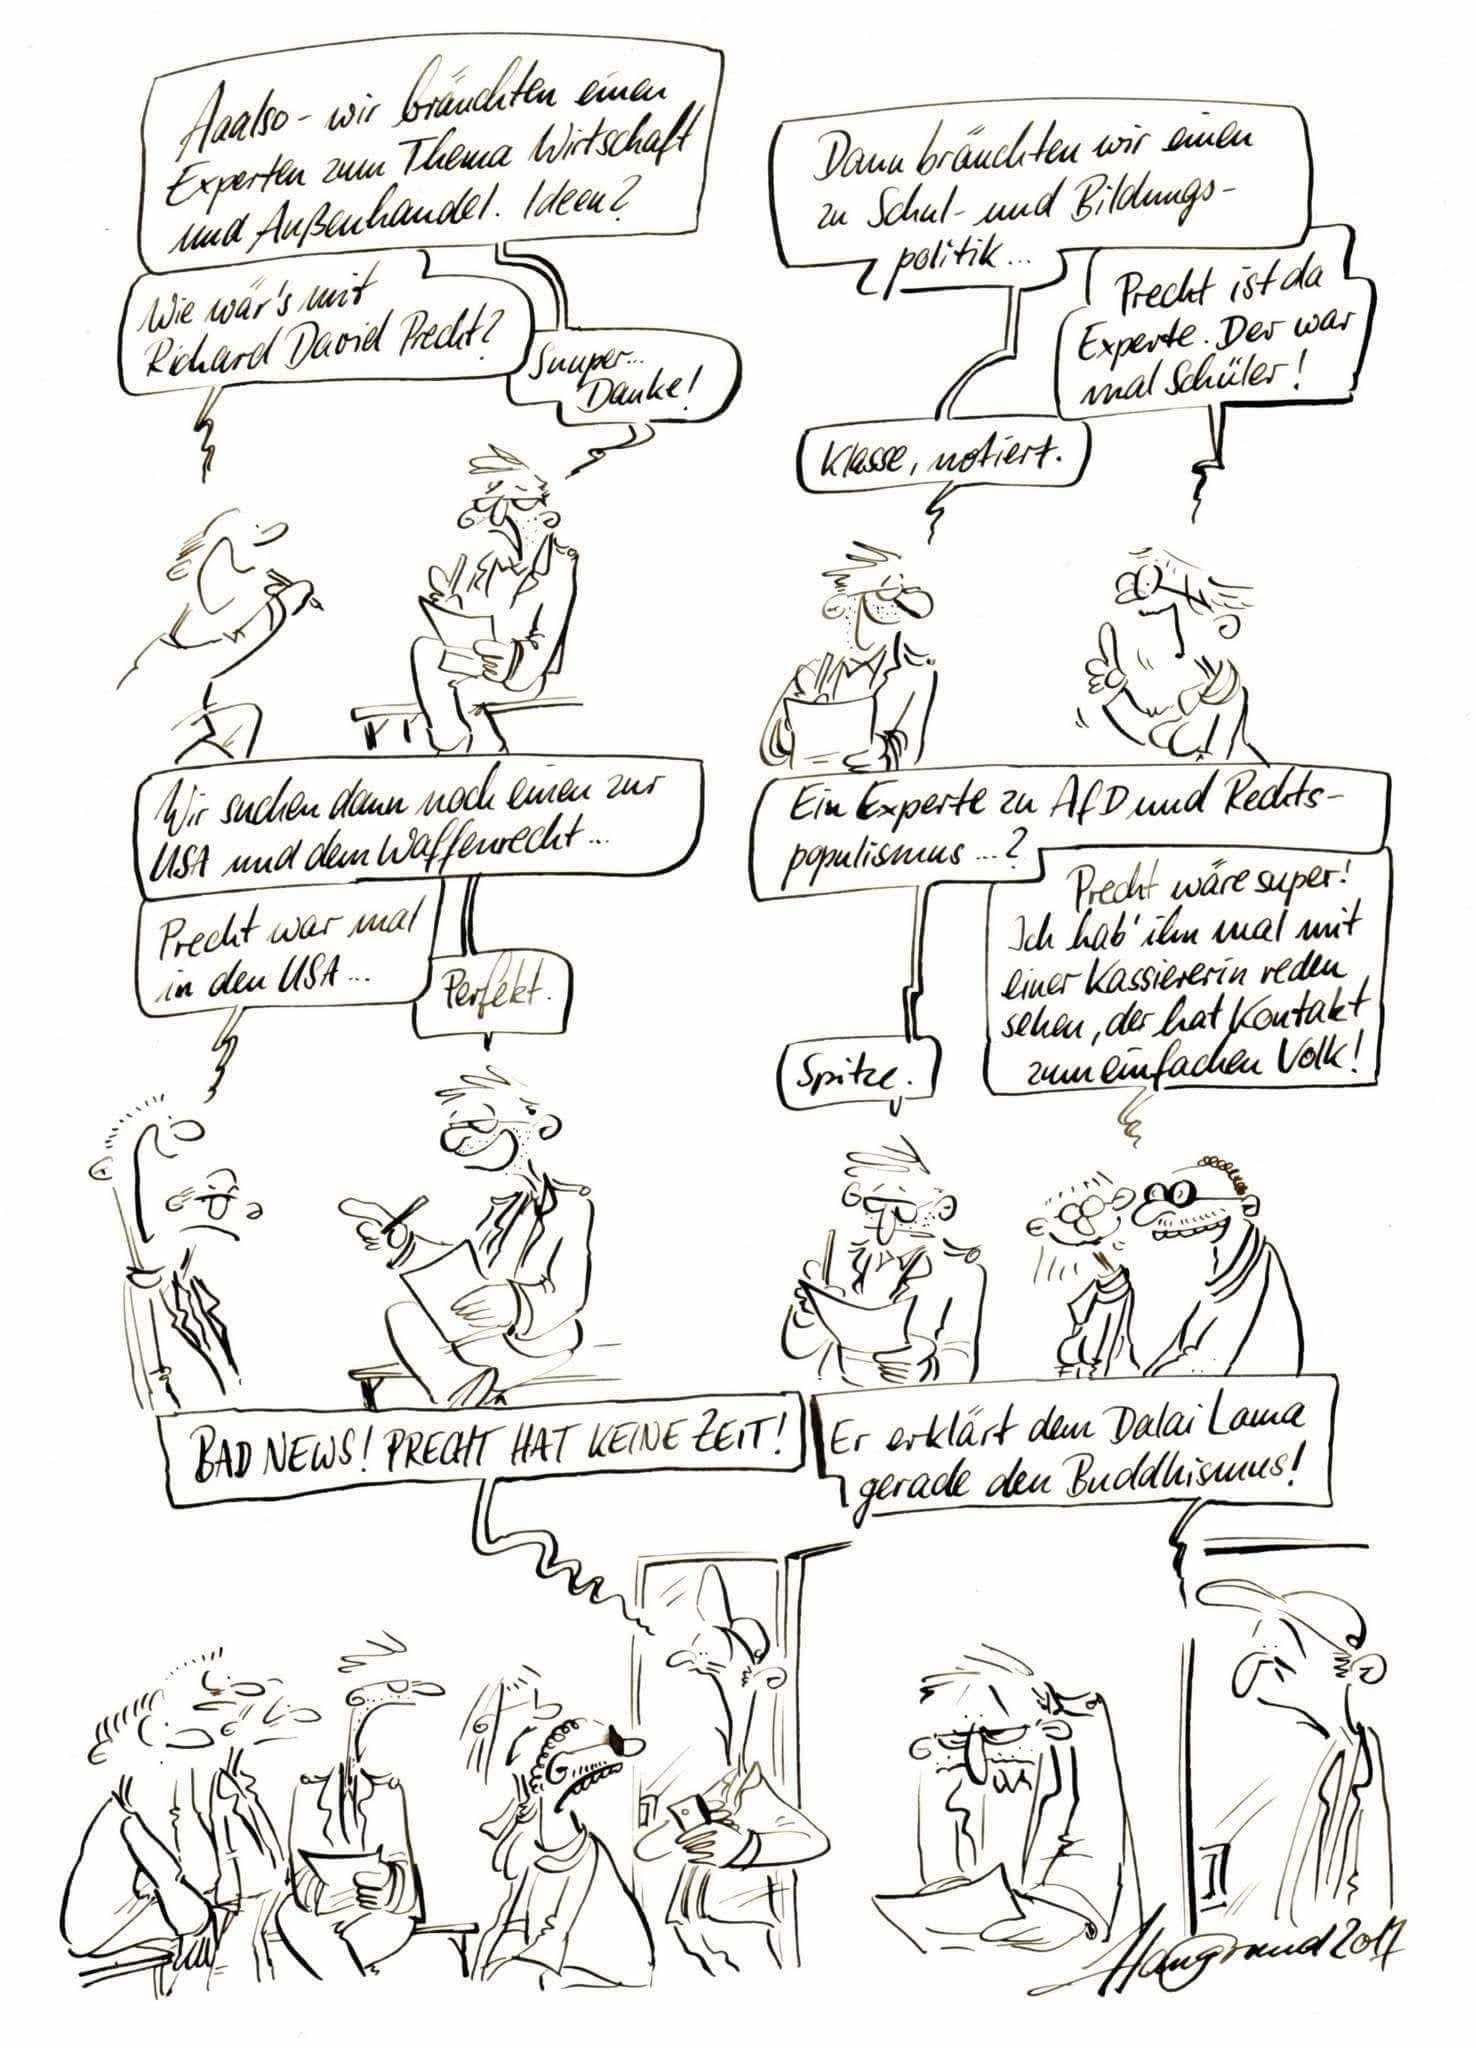 Aaalso - wir bräuchten einen
Experten zum Thema Wirtschaft
und Außenhandel. Ideen?
Wie wär's mit
Richard David Precht?
Suuper...
Danke!
Dann bräuchten wir einen
zu Schul- und Bildungs-
politik...
Precht ist da
Experte. Der war
mal Schüler!
Klasse, notiert.
Wir suchen dann noch einen zur
USA und dem Waffenrecht...
Precht war mal
in den USA...
Perfekt.
Ein Experte zu AfD und Rechts-
populismus...?
Precht wäre super!
Ich hab' ihn mal mit
einer Kassiererin reden
sehen, der hat Kontakt
zum einfachen Volk!
Spitze.
BAD NEWS! PRECHT HAT KEINE ZEIT!
Er erklärt dem Dalai Lama
gerade den Buddhismus!
Hauγrund 2017